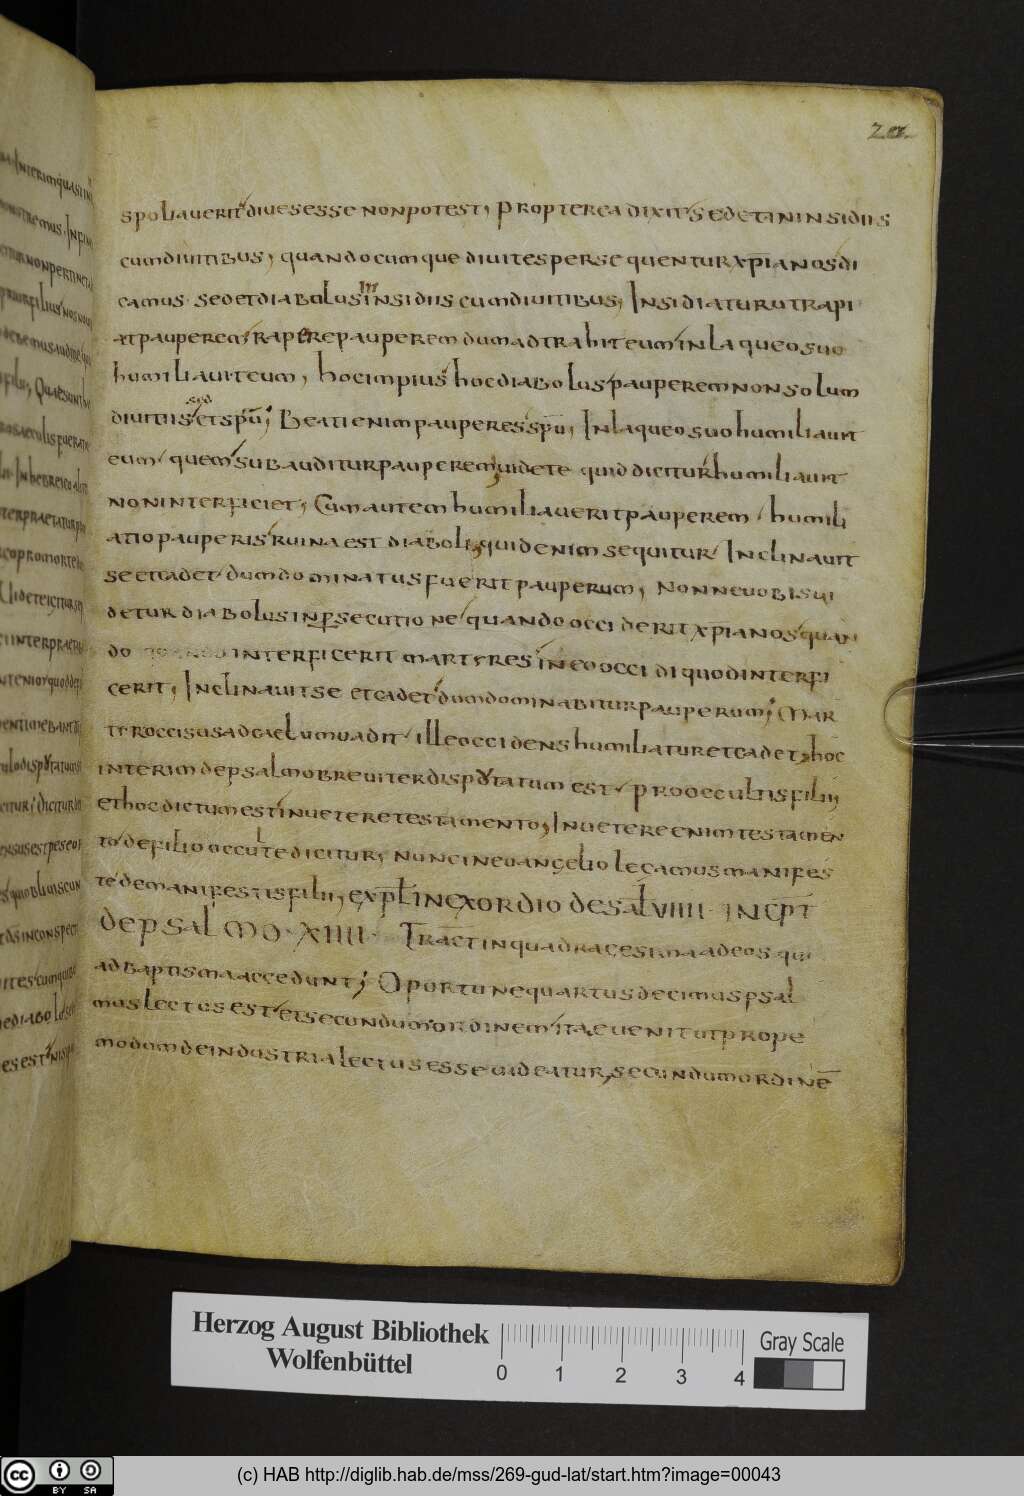 20.
spoliauerit diues esse non potest, Propterea dixit sedet in insidiis
cum diuitibus, quandocumque diuites persequentur xpianos di
camus sedet diabolus in insidiis cum diuitibus, Insidiatur ut rapi
at pauperem rapere pauperem dum adtrahit eum in laqueo suo
humiliauit eum, hoc impius hoc diabolus pauperem non solum
sed
diuitiis et spu; Beati enim pauperes spu, In laqueo suo humiliauit
eum quem subauditur pauperem, uidete quid dicitur humiliauit
non interficiet, Cum autem humiliauerit pauperem humili
atio pauperis ruina est diaboli, quid enim sequitur Inclinauit
se et cadet dum dominatus fuerit pauperum, Nonne uobis ui
detur diabolus in psecutione quando occiderit xpianos quan
do interficerit martyres in eo occidi quod interfi
cerit, Inclinauit se et cadet dum dominabitur pauperum; Mar
tyr occisus ad caelum uadit ille occidens humiliatur et cadet, hoc
interim de psalmo breuiter disputatum est, pro occultis filii,
et hoc dictum est in uetere testamento, In uetere enim testamen
to de filio occulte dicitur, nunc in euangelio legamus manifes
te de manifestis filii, expl in exordio de sal VIIII INCPT
de psalmo XIIII Tract in quadragesima ad eos qui
ad baptisma accedunt; Oportune quartus decimus psal
mus lectus est et secundum ordinem ita euenit ut prope
modum de industria lectus esse uideatur, secundum ordine
Herzog August Bibliothek
Wolfenbüttel
0 1 2 3 4
Gray Scale
cc BY SA
(c) HAB http://diglib.hab.de/mss/269-gud-lat/start.htm?image=00043